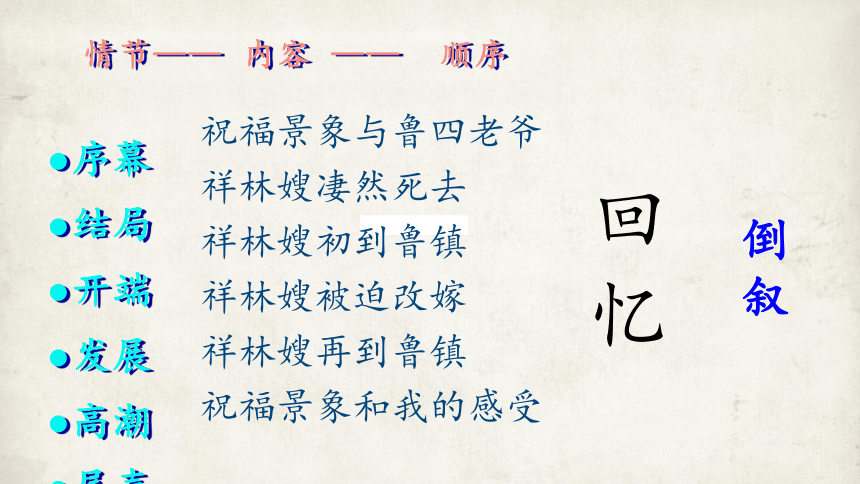 情节—— 内容 —— 顺序
●序幕
●结局
●开端
●发展
●高潮
祝福景象与鲁四老爷
祥林嫂凄然死去
祥林嫂初到鲁镇
祥林嫂被迫改嫁
祥林嫂再到鲁镇
祝福景象和我的感受
回忆
倒叙